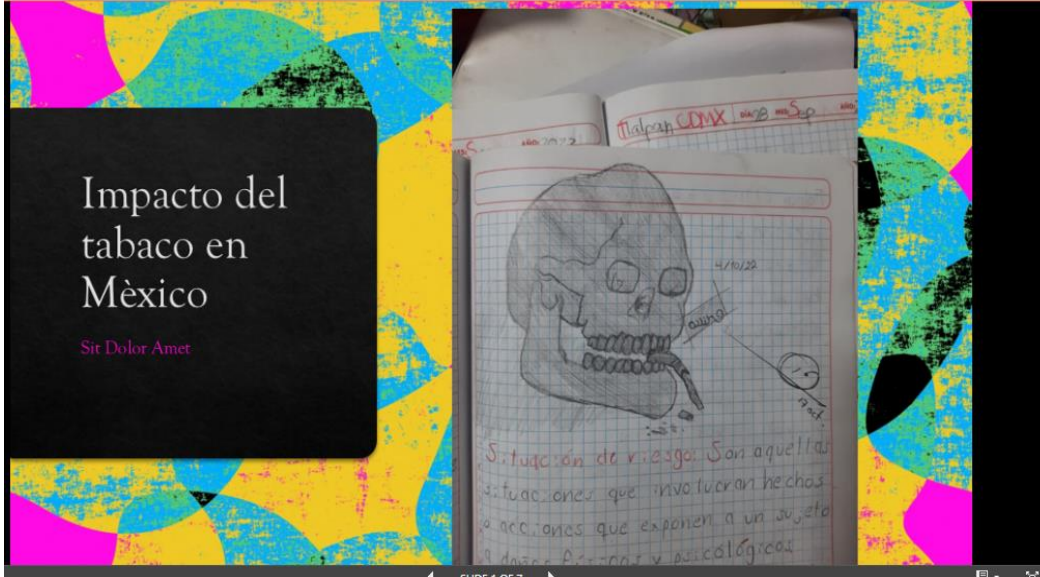 Impacto del
tabaco en
Mèxico
Sit Dolor Amet
Tlalpan CDMX DÍA 28 MES Sep AÑO
S AÑO 2022
4/10/22
17 oct.
Situación de riesgo: Son aquellas
situaciones que involucran hechos
o acciones que exponen a un sujeto
a daños físicos y psicológicos
SLIDE 1 OF 7